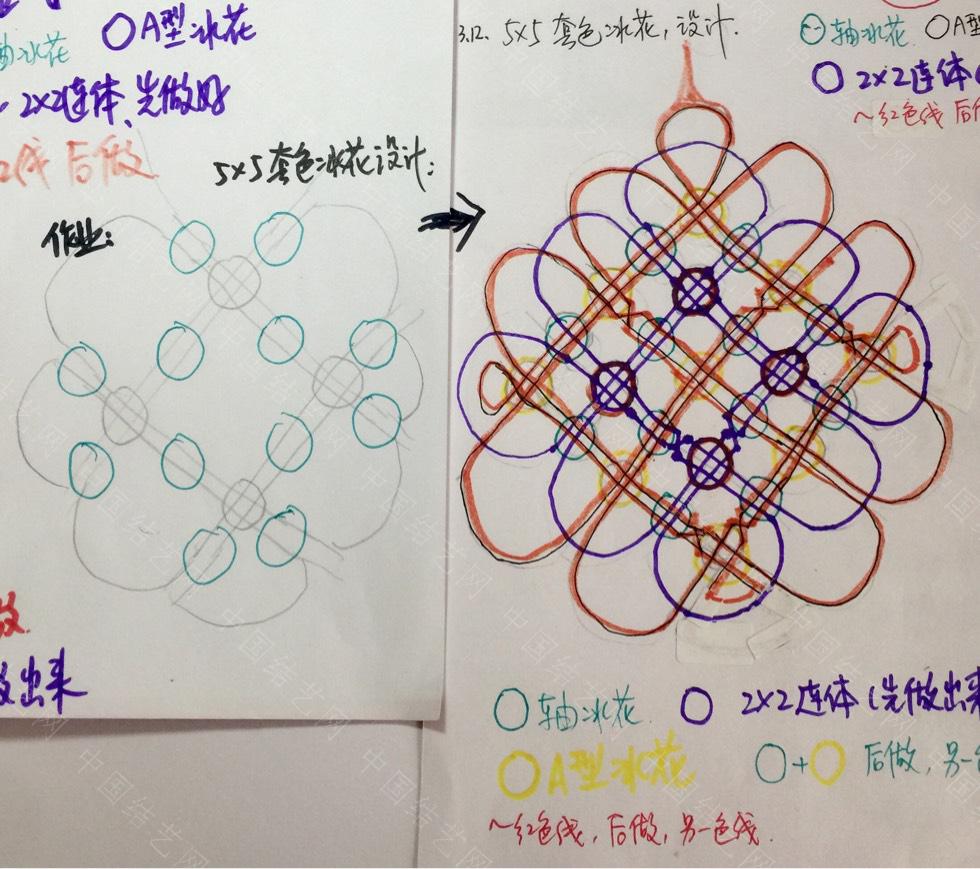 A型冰花
轴冰花
2×2连体、先做好
线 后做
5×5套色冰花设计:
作业:
做出来
3.12. 5×5套色冰花,设计.
轴冰花 A型
2×2连体
~红色线 后
轴冰花 2×2连体(先做出来
A型冰花 + 后做,另一
~红色线,后做,另一色线.
中国结艺网